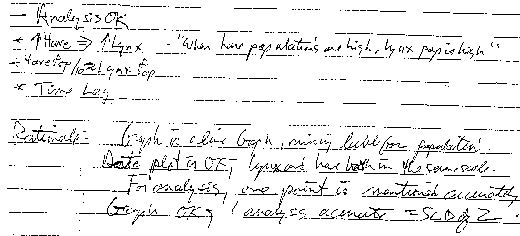 - Analysis OK
* ↑Hare ⇒ ↑Lynx - "When hare populations are high, lynx pop is high"
- Hare Pop/ Lynx Pop
* Time Lag
Rationale- Graph is a line Graph, missing label for population.
Data plot is OK, lynx and hare both in the same scale.
For analysis, one point is mentioned accurately
Graph OK, analysis accurate = Sc